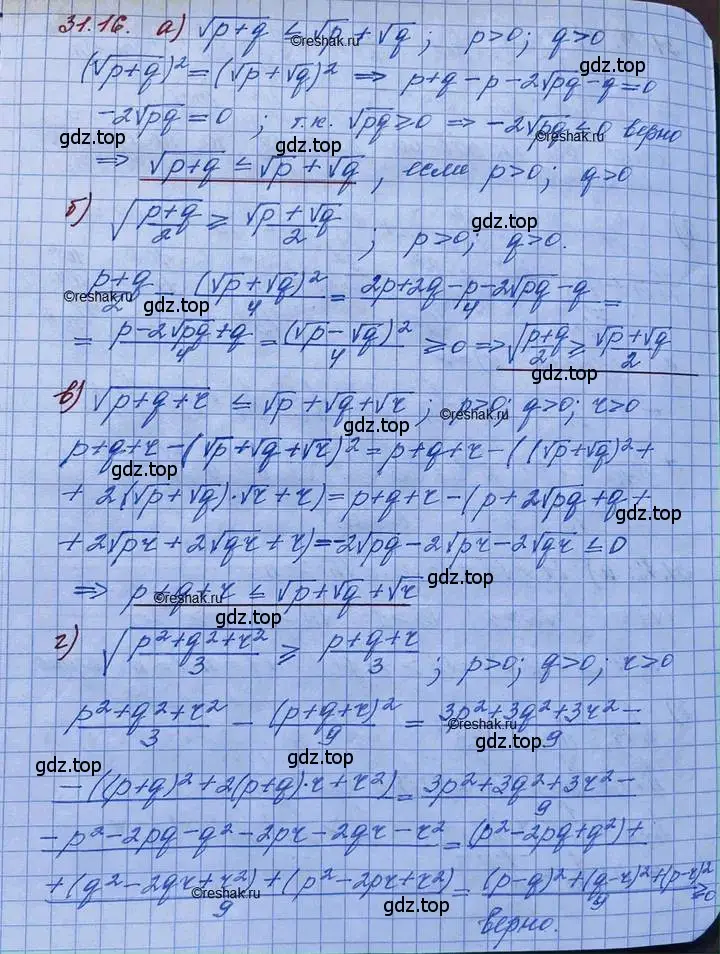 31.16. а) √(p+q) ≤ √p + √q ; p>0; q>0
(√(p+q))² = (√p+√q)² ⇒ p+q−p−2√pq−q=0
−2√pq = 0 ; т.к. √pq ≥0 ⇒ −2√pq ≤ 0 верно
⇒ √(p+q) ≤ √p + √q , если p>0; q>0
б) √((p+q)/2) ≥ (√p+√q)/2 ; p>0; q>0.
(p+q)/2 − (√p+√q)²/4 = (2p+2q−p−2√pq−q)/4 =
= (p−2√pq+q)/4 = (√p−√q)²/4 ≥0 ⇒ √((p+q)/2) ≥ (√p+√q)/2
в) √(p+q+r) ≤ √p+√q+√r ; p>0; q>0; r>0
p+q+r−(√p+√q+√r)² = p+q+r−((√p+√q)²+
+2(√p+√q)·√r+r) = p+q+r−(p+2√pq+q+
+2√pr+2√qr+r)=−2√pq−2√pr−2√qr ≤0
⇒ p+q+r ≤ √p+√q+√r
г) √((p²+q²+r²)/3) ≥ (p+q+r)/3 ; p>0; q>0; r>0
(p²+q²+r²)/3 − (p+q+r)²/9 = (3p²+3q²+3r²−)/9
(−((p+q)²+2(p+q)·r+r²)) = (3p²+3q²+3r²−)/9
−p²−2pq−q²−2pr−2qr−r² = (p²−2pq+q²)+
(+(q²−2qr+r²)+(p²−2pr+r²))/9 = ((p−q)²+(q−r)²+(p−r)²)/9 ≥0
верно.
©reshak.ru
gdz.top
©reshak.ru
gdz.top
gdz.top
gdz.top
gdz.top
©reshak.ru
gdz.top
gdz.top
©reshak.ru
gdz.top
gdz.top
gdz.top
©reshak.ru
gdz.top
©reshak.ru
gdz.top
gdz.top
gdz.top
©reshak.ru
gdz.top